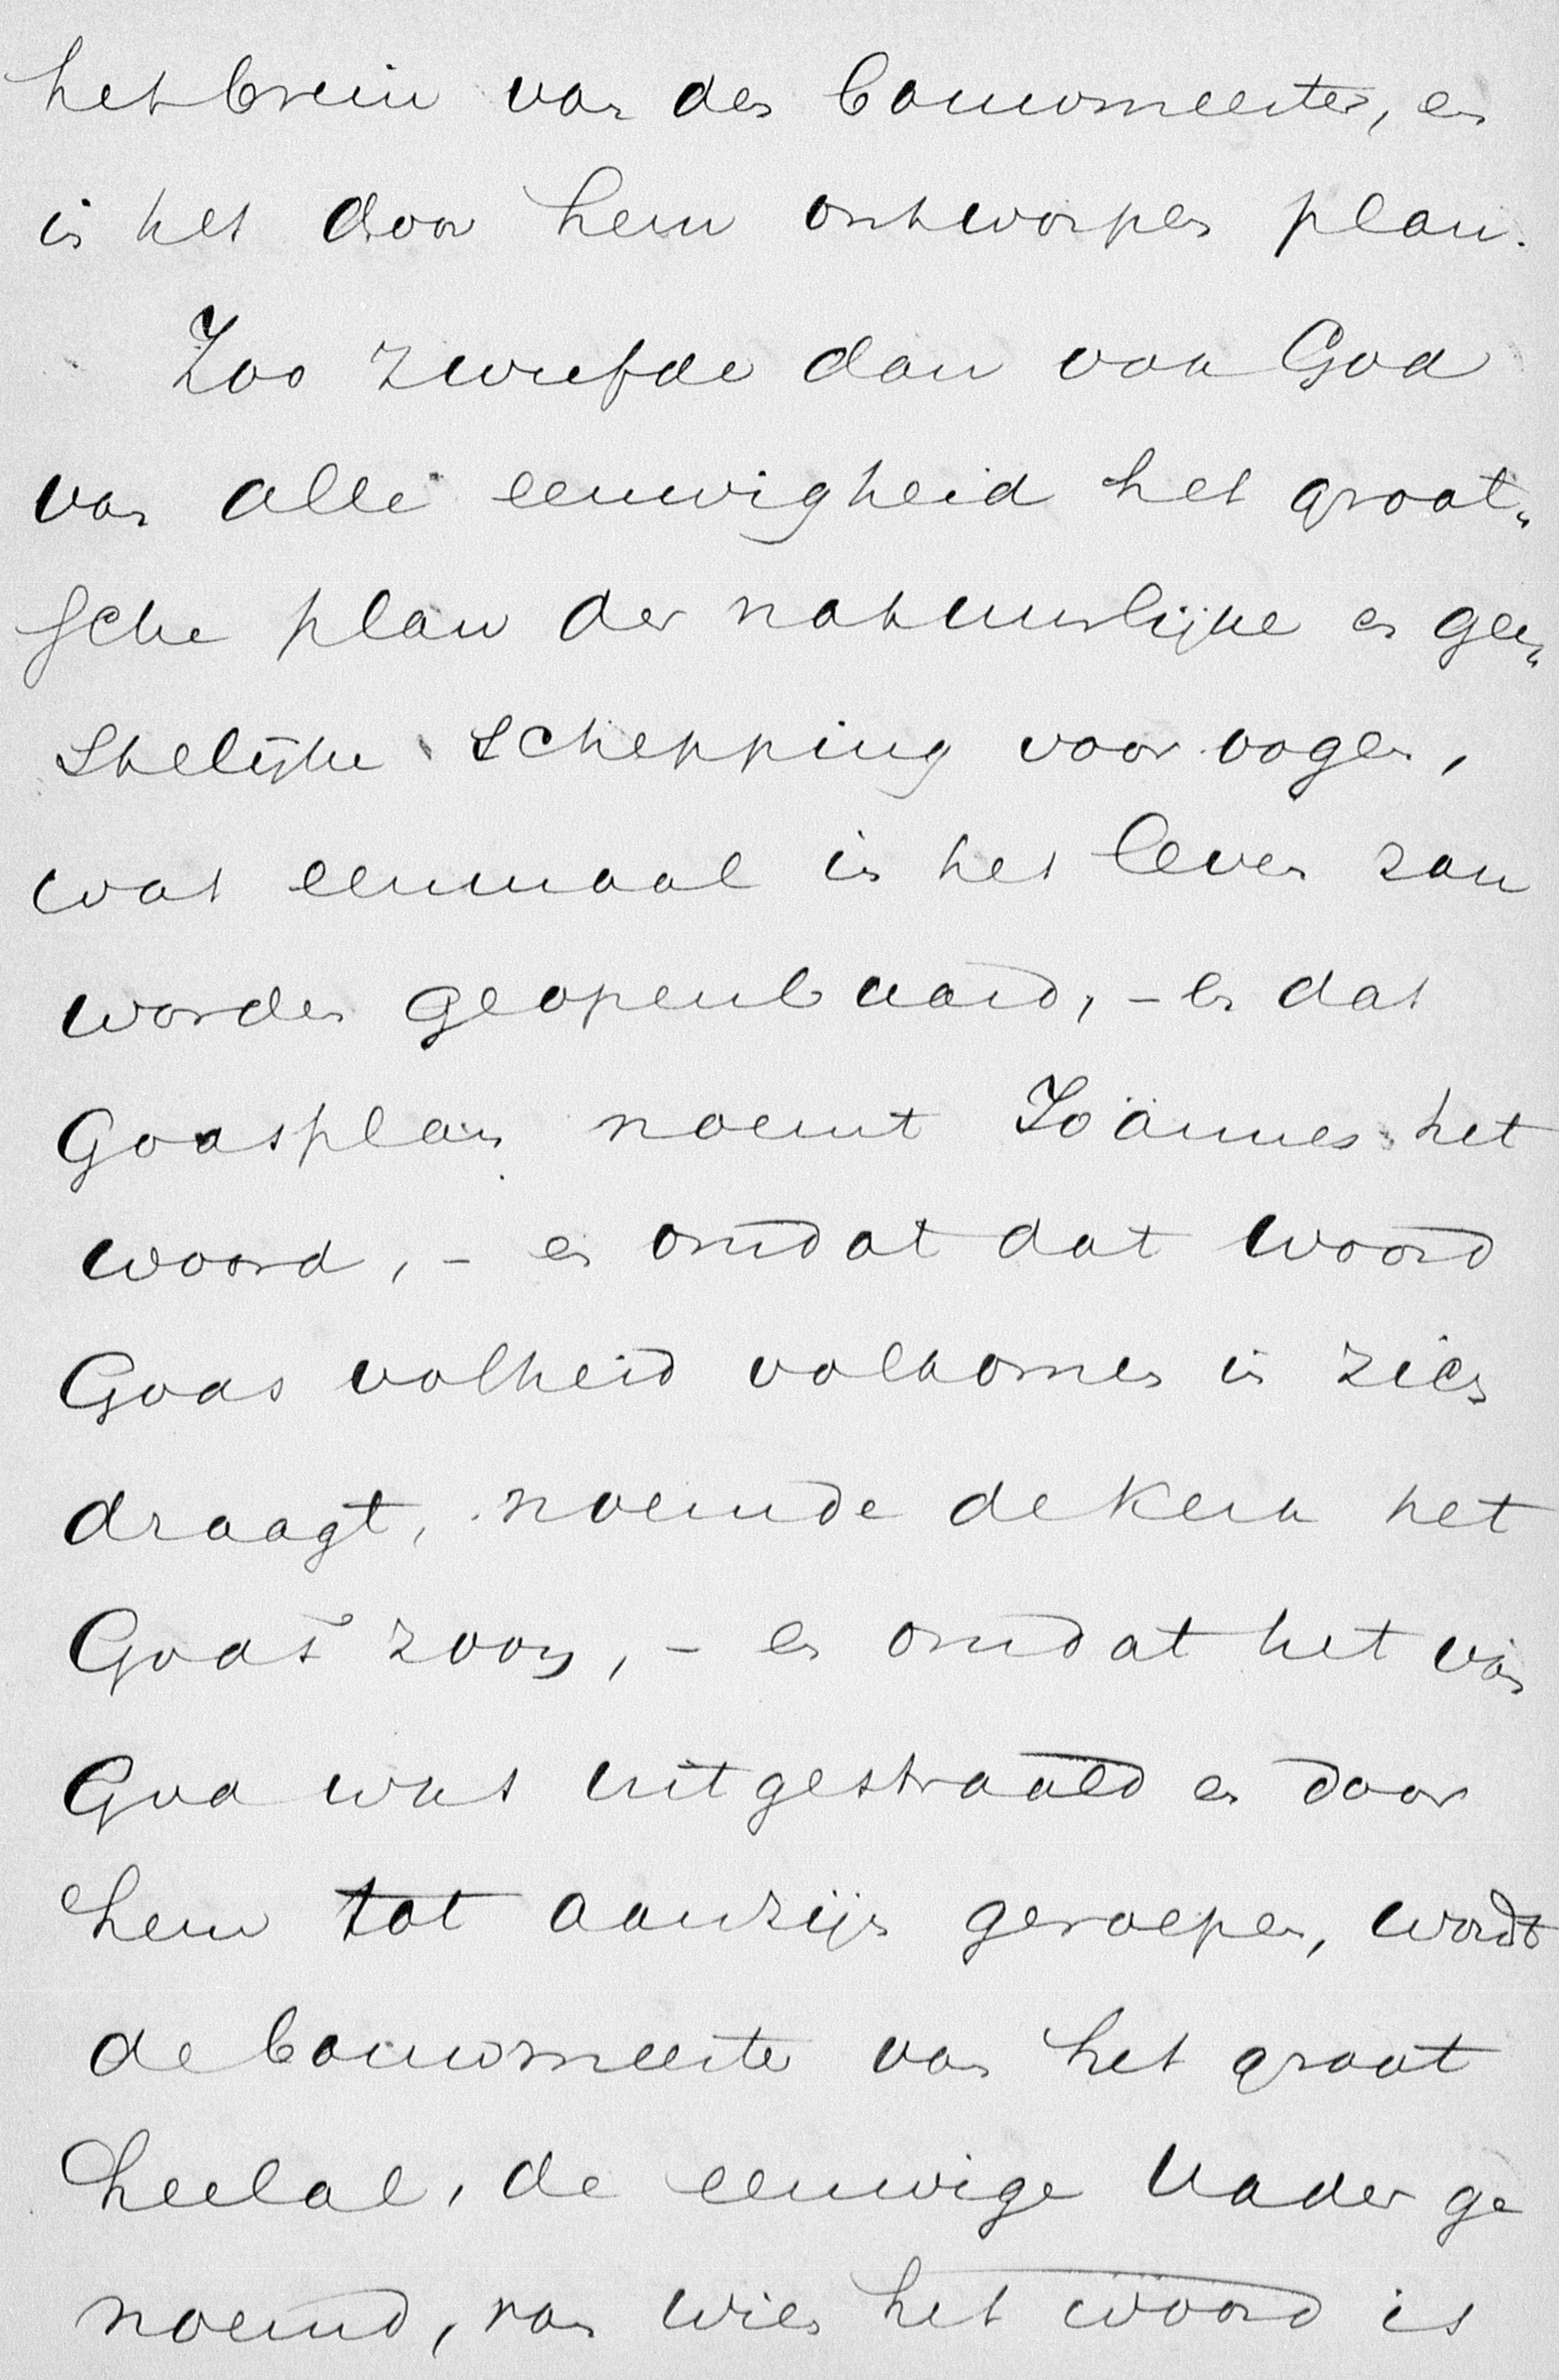 het brein van den bouwmeester, en
in het door hem ontworpen plan.
Zoo zweefde dan voor God
van alle eeuwigheid het groot„
sche plan der natuurlijke en gee„
stelijke schepping voor oogen,
wat eenmaal in het leven zou
worden geopenbaard, – en dat
Godsplan noemt Joännes het
woord, – en omdat dat woord
Gods volheid volkomen in zich
draagt, noemde de kerk het
Gods zoon, – en omdat het van
God was uitgestraald en door
hem tot aanzijn geroepen, wordt
de bouwmeester van het groot
heelal, de eeuwige Vader ge
noemd, van wien het woord is